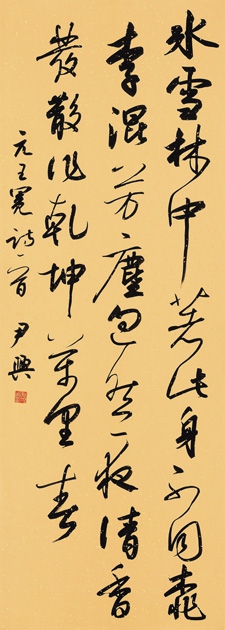 冰雪林中著此身不同桃
李混芳塵忽然一夜清香
發散作乾坤萬里春
元王冕詩一首 尹興